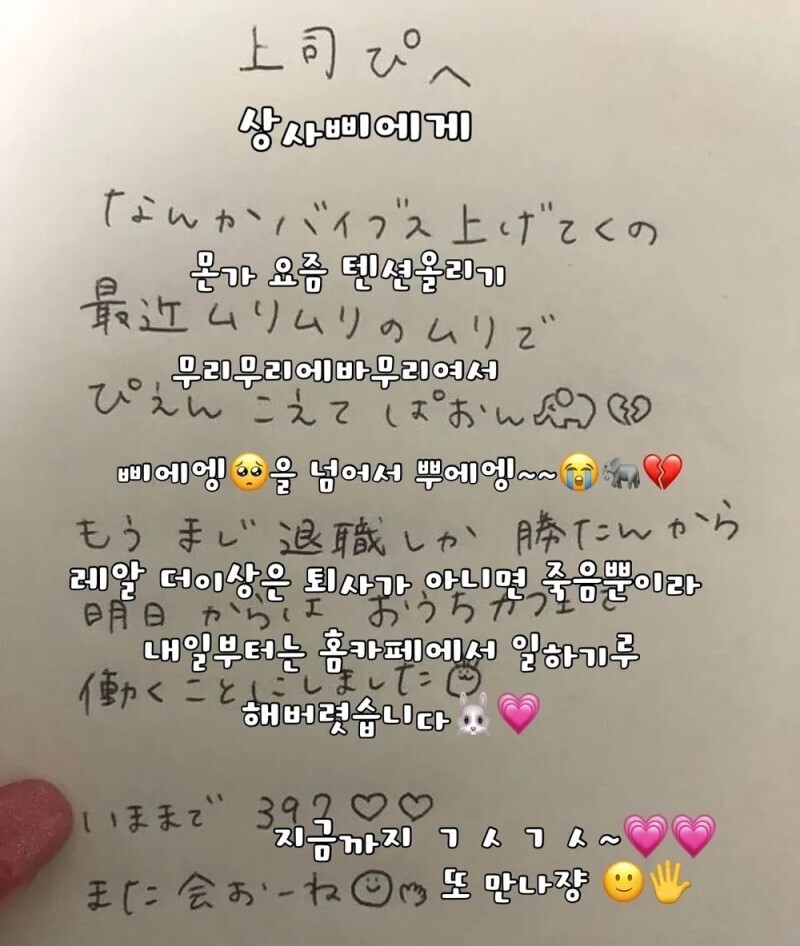 上司ぴへ
상사삐에게
なんかバイブス上げてくの
몬가 요즘 텐션올리기
最近ムリムリのムリで
무리무리에바무리여서
ぴえんこえてぱおん
삐에엥🥺을 넘어서 뿌에엥~~😭🐘💔
もうまじ退職しか勝たんから
레알 더이상은 퇴사가 아니면 죽음뿐이라
明日からはおうちカフェで
내일부터는 홈카페에서 일하기루
働くことにしました
해버렷습니다🐰💗
いままで 392♡♡
지금까지 ㄱㅅㄱㅅ~💗💗
また会おーね
또 만나쟝 🙂🖐